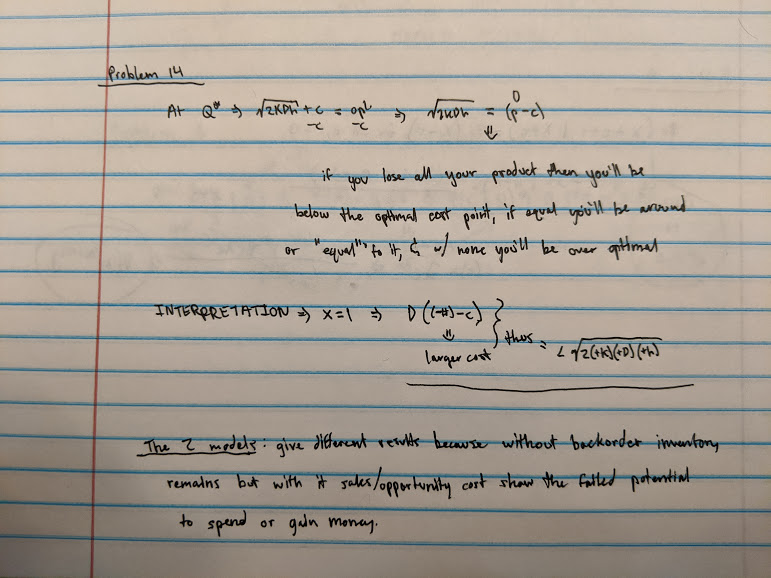 Problem 14
At Q* ⇒ √2KDh + c = opL ⇒ √2KDh = (p - c)
-c -c D ⇓
if you lose all your product then you'll be
below the optimal cost point, if equal you'll be around
or "equal" to it, & w/ none you'll be over optimal
INTERPRETATION ⇒ x=1 ⇒ D((-#)-c) } thus = < √2(+K)(+D)(+h)
⇓
larger cost
The 2 models: give different results because without backorder inventory
remains but with it sales/opportunity cost show the failed potential
to spend or gain money.